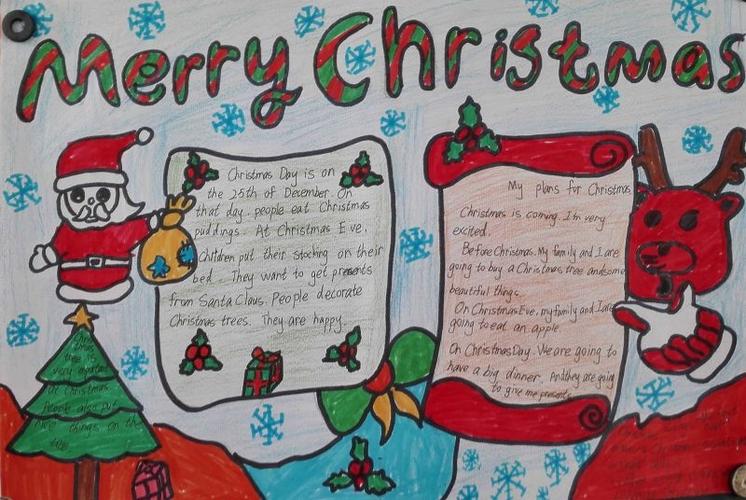 Merry Christmas
Christmas Day is on
the 25th of December. On
that day. people eat Christmas
puddings. At Christmas Eve,
Children put their stocking on their
bed. They want to get presents
from Santa Claus. People decorate
Christmas trees. They are happy.
My plans for Christmas
Christmas is coming. I'm very
excited.
Before Christmas. My family and I are
going to buy a Christmas tree and some
beautiful things.
On Christmas Eve, my family and I are
going to eat an apple.
On Christmas Day. We are going to
have a big dinner. And they are going
to give me presents.
tree is
very important
at Christmas.
People also put
nice things on the
tree.